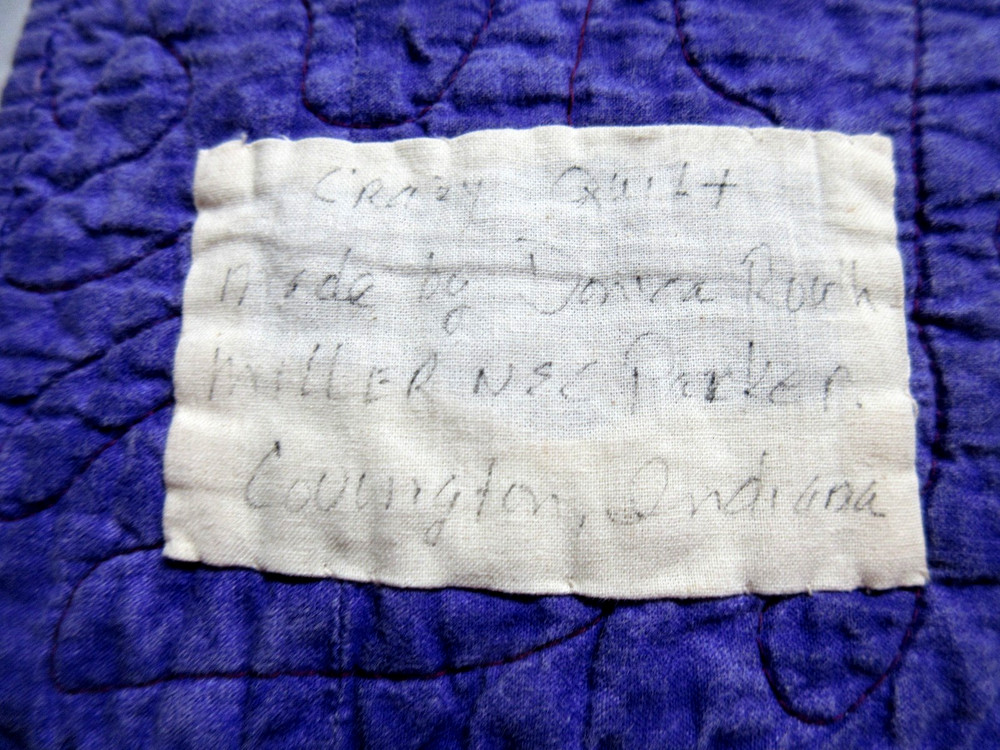 Crazy Quilt
made by Ruth
Miller nee Parker.
Covington, Indiana